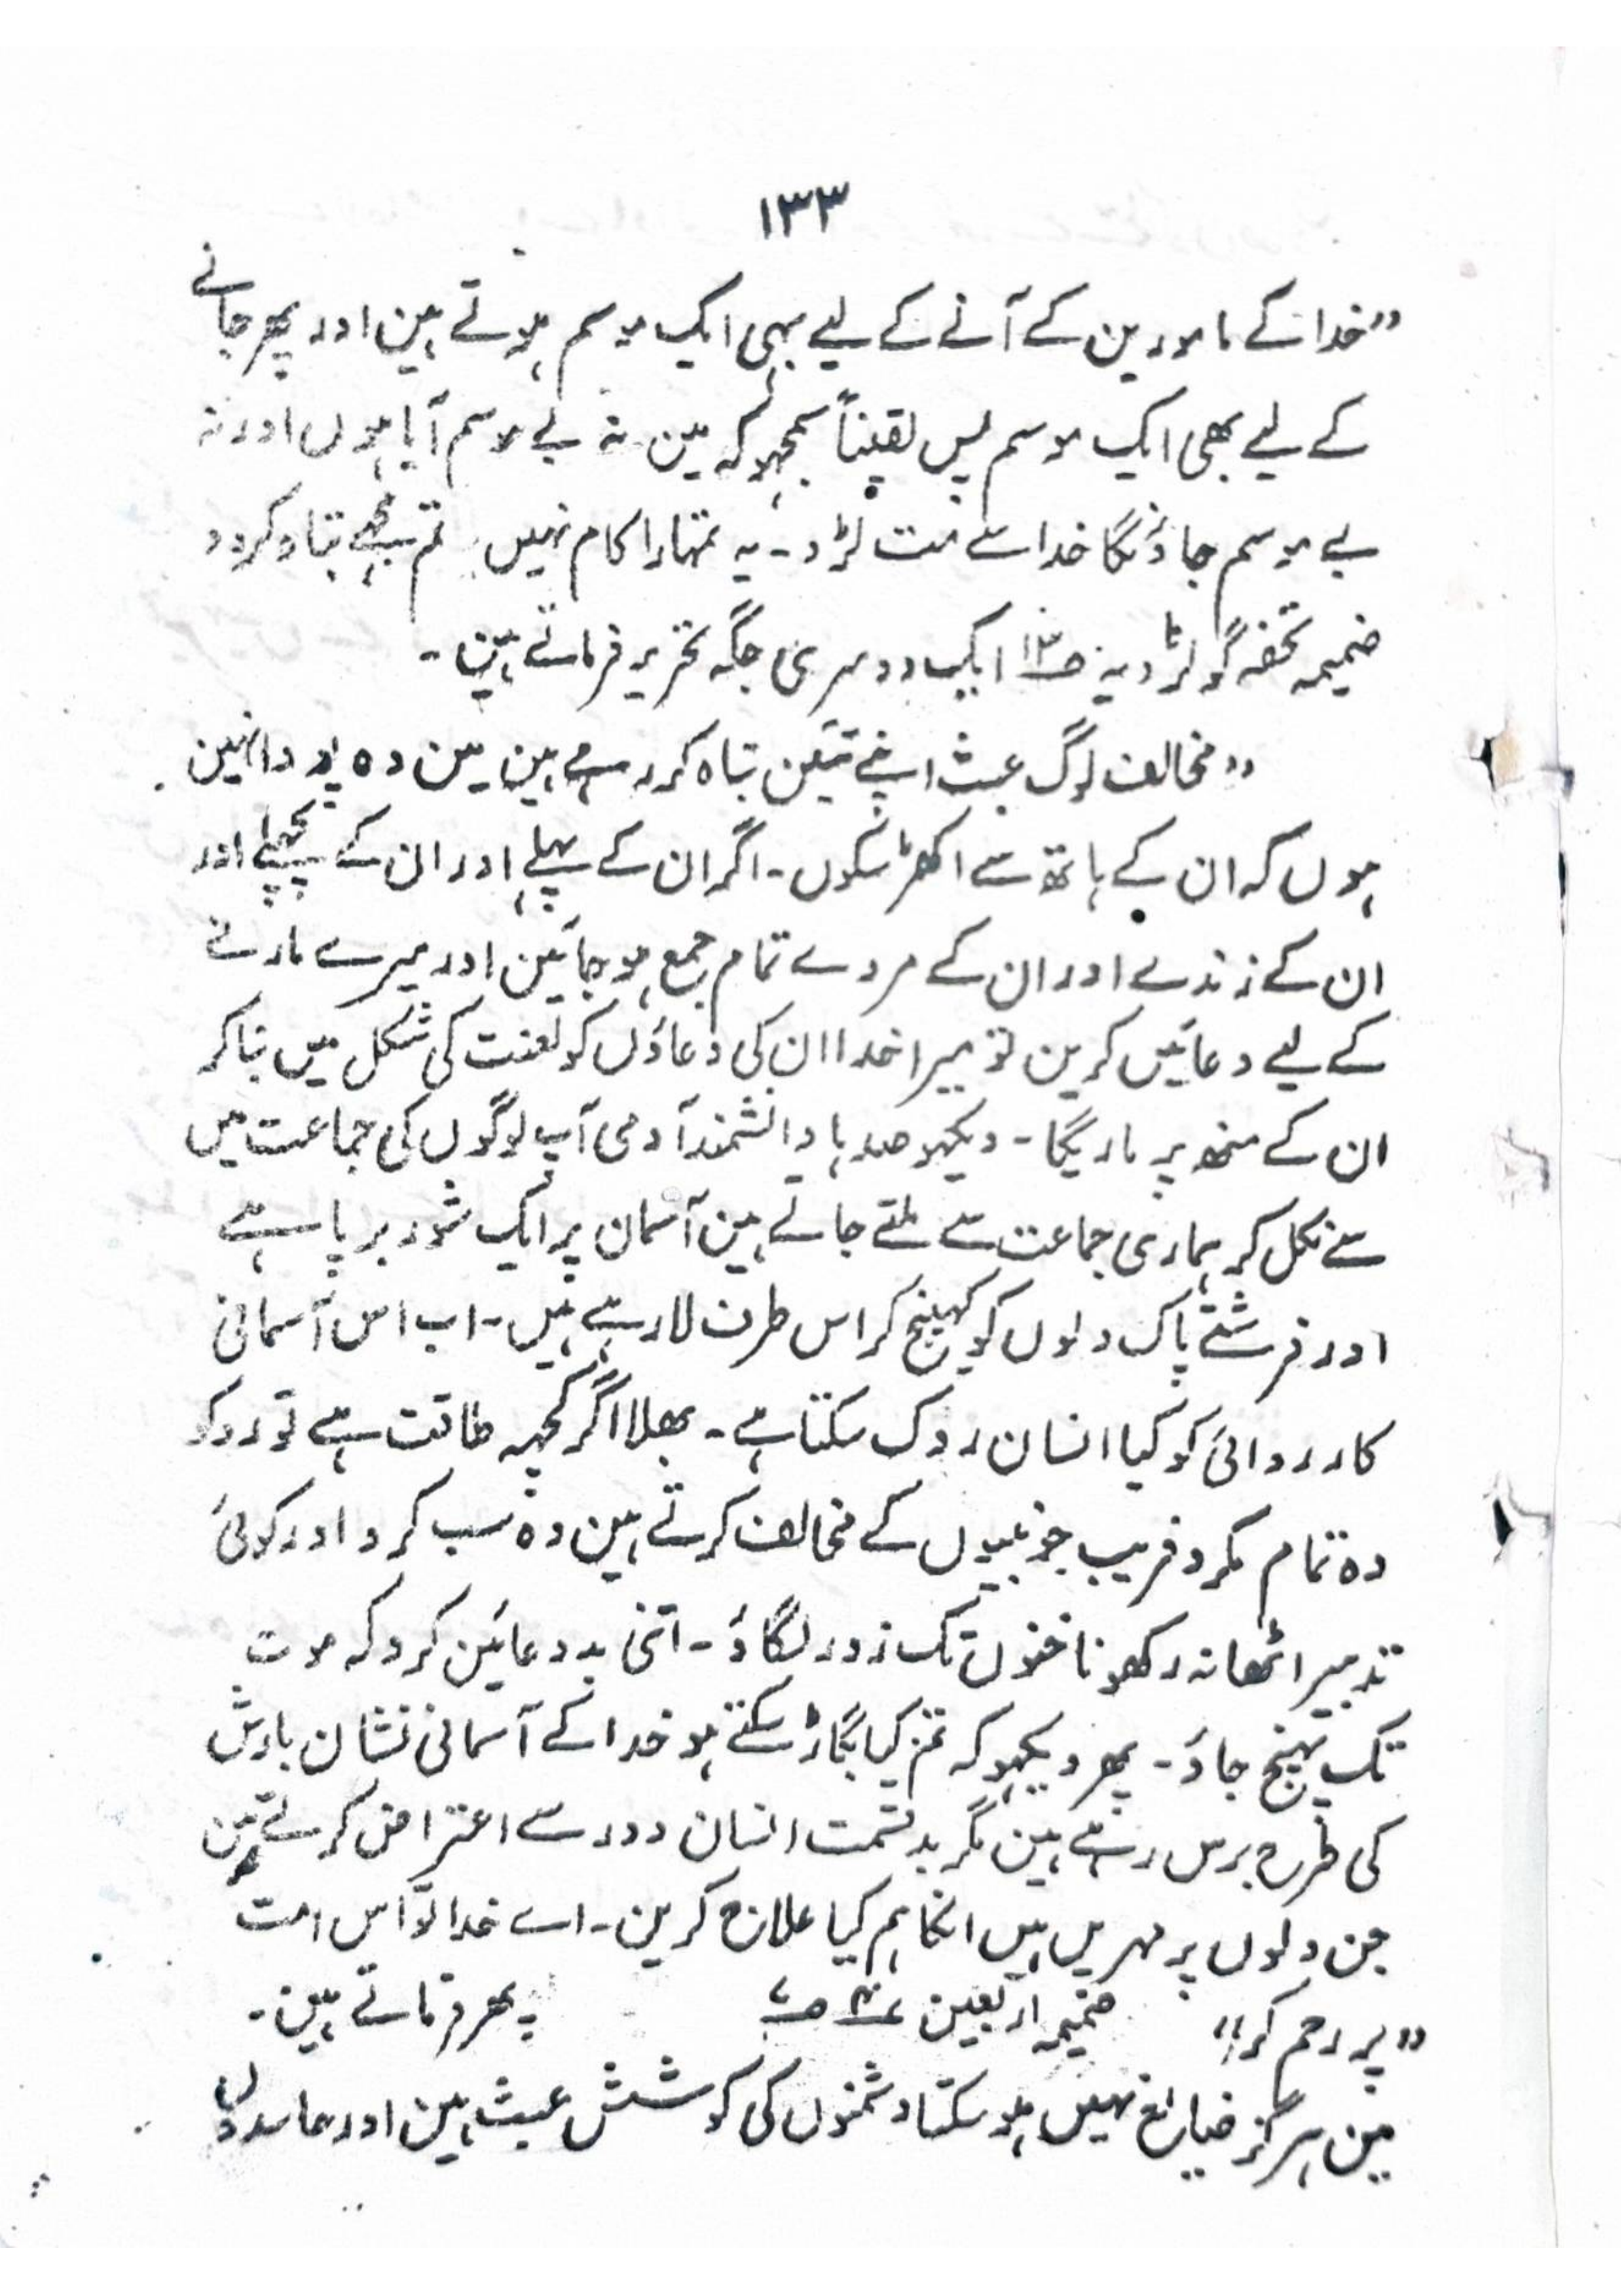 ۱۳۳
"خدا کے مامورین کے آنے کے لیے بہی ایک موسم ہوتے ہین اور پھر جانے
کے لیے بھی ایک موسم پس یقیناً سمجہو کہ مین نہ بے موسم آیا ہوں اور نہ
بے موسم جاؤنگا خدا سے مت لڑو ۔ یہ تمہارا کام نہیں تم مجھے تباہ کردو
ضمیمہ تحفہ گولڑویہ ص۱۳ ایک دوسری جگہ تحریر فرماتے ہین ۔
"مخالف لوگ عبث اپنے تئین تباہ کر رہے ہین مین وہ پودا نہین
ہوں کہ ان کے ہاتھ سے اکھڑ سکوں ۔ اگر ان کے پہلے اور ان کے پچھلے اور
ان کے زندے اور ان کے مردے تمام جمع ہو جائین اور میرے مارنے
کے لیے دعائیں کرین تو میرا خدا ان کی دعاؤں کو لعنت کی شکل میں بنا کر
ان کے منھ پر ماریگا ۔ دیکہو صدہا دانشمند آدمی آپ لوگوں کی جماعت میں
سے نکل کر ہماری جماعت سے ملتے جاتے ہین آسمان پر ایک شور برپا ہے
اور فرشتے پاک دلوں کو کہینچ کر اس طرف لا رہے ہیں ۔ اب اس آسمانی
کارروائی کو کیا انسان روک سکتا ہے ۔ بھلا اگر کچہہ طاقت ہے تو روکو
وہ تمام مکر و فریب جو نبیوں کے مخالف کرتے ہین وہ سب کرو اور کوئی
تدبیر اٹھا نہ رکھو ناخنوں تک زور لگاؤ ۔ اتنی بد دعائین کرو کہ موت
تک پہنچ جاؤ ۔ پھر دیکہو کہ تم کیا بگاڑ سکتے ہو خدا کے آسمانی نشان بارش
کی طرح برس رہے ہین مگر بدقسمت انسان دور سے اعتراض کرتے ہین
جن دلوں پر مہریں ہیں انکا ہم کیا علاج کرین ۔ اے خدا تو اس امت
"پر رحم کر" ضمیمہ اربعین ۴ ص۷ پھر فرماتے ہین ۔
مین ہرگز ضیائع نہیں ہو سکتا دشمنوں کی کوشش عبث ہین اور حاسدوں